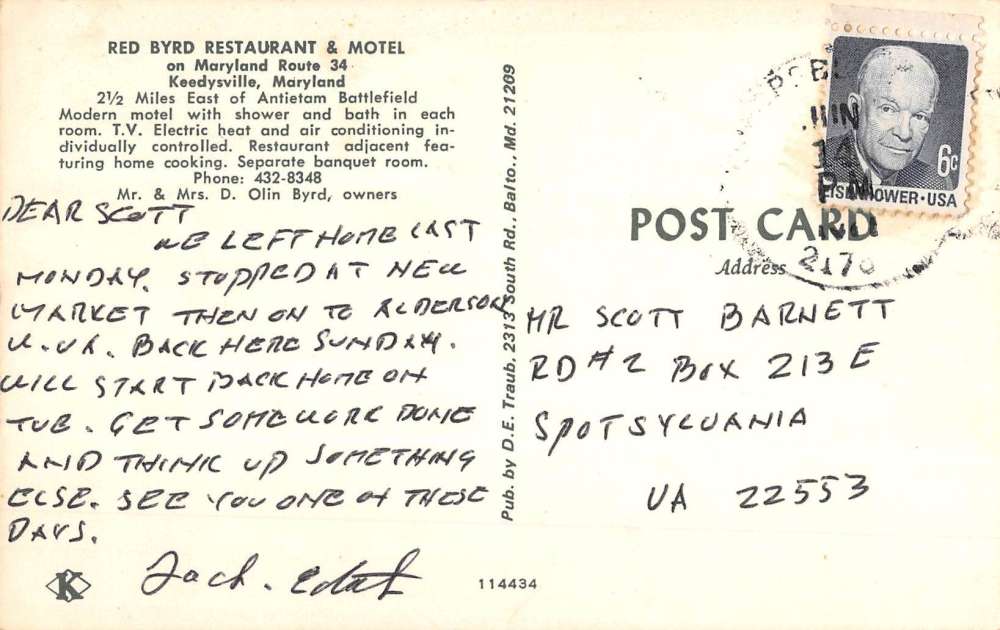 RED BYRD RESTAURANT & MOTEL
on Maryland Route 34
Keedysville, Maryland
2½ Miles East of Antietam Battlefield
Modern motel with shower and bath in each
room. T.V. Electric heat and air conditioning in-
dividually controlled. Restaurant adjacent fea-
turing home cooking. Separate banquet room.
Phone: 432-8348
Mr. & Mrs. D. Olin Byrd, owners
DEAR SCOTT
WE LEFT HOME LAST
MONDAY. STOPPED AT NEW
MARKET THEN ON TO ALDERSON
W.VA. BACK HERE SUNDAY.
WILL START BACK HOME ON
TUE. GET SOME WORK DONE
AND THINK UP SOMETHING
ELSE. SEE YOU ONE OF THESE
DAYS.
Jach.
K
114434
Pub. by D.E. Traub. 2313 South Rd., Balto., Md. 21209
JUN
14
PM
2176
6c
EISENHOWER·USA
POST CARD
Address
MR SCOTT BARNETT
RD #2 BOX 213 E
SPOTSYLVANIA
VA 22553